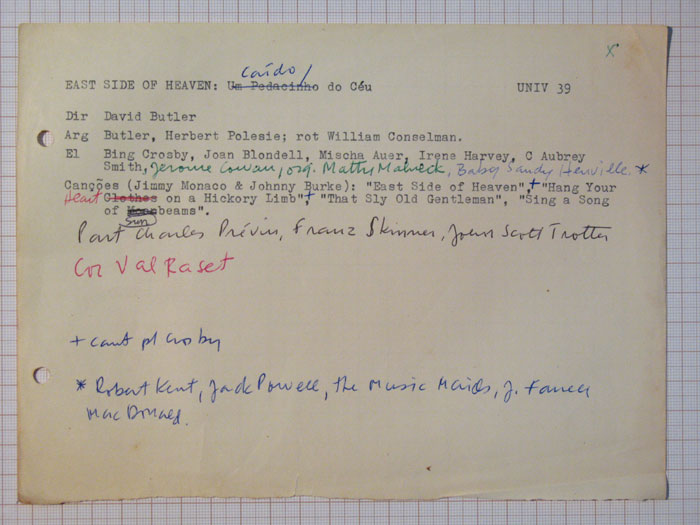 x
caído/
EAST SIDE OF HEAVEN: Um Pedacinho do Céu UNIV 39
Dir David Butler
Arg Butler, Herbert Polesie; rot William Conselman.
El Bing Crosby, Joan Blondell, Mischa Auer, Irene Harvey, C Aubrey
Smith, Jerome Cowan, orq. Matty Malneck, Baby Sandy Henville. *
Canções (Jimmy Monaco & Johnny Burke): "East Side of Heaven",+ "Hang Your
Heart Clothes on a Hickory Limb",+ "That Sly Old Gentleman", "Sing a Song
of Moonbeams".
Sun
Part Charles Prévin, Franz Skinner, John Scott Trotter
Cor Val Raset
+ cant pl Crosby
* Robert Kent, Jack Powell, the Music Maids, J. Farrell
MacDonald.